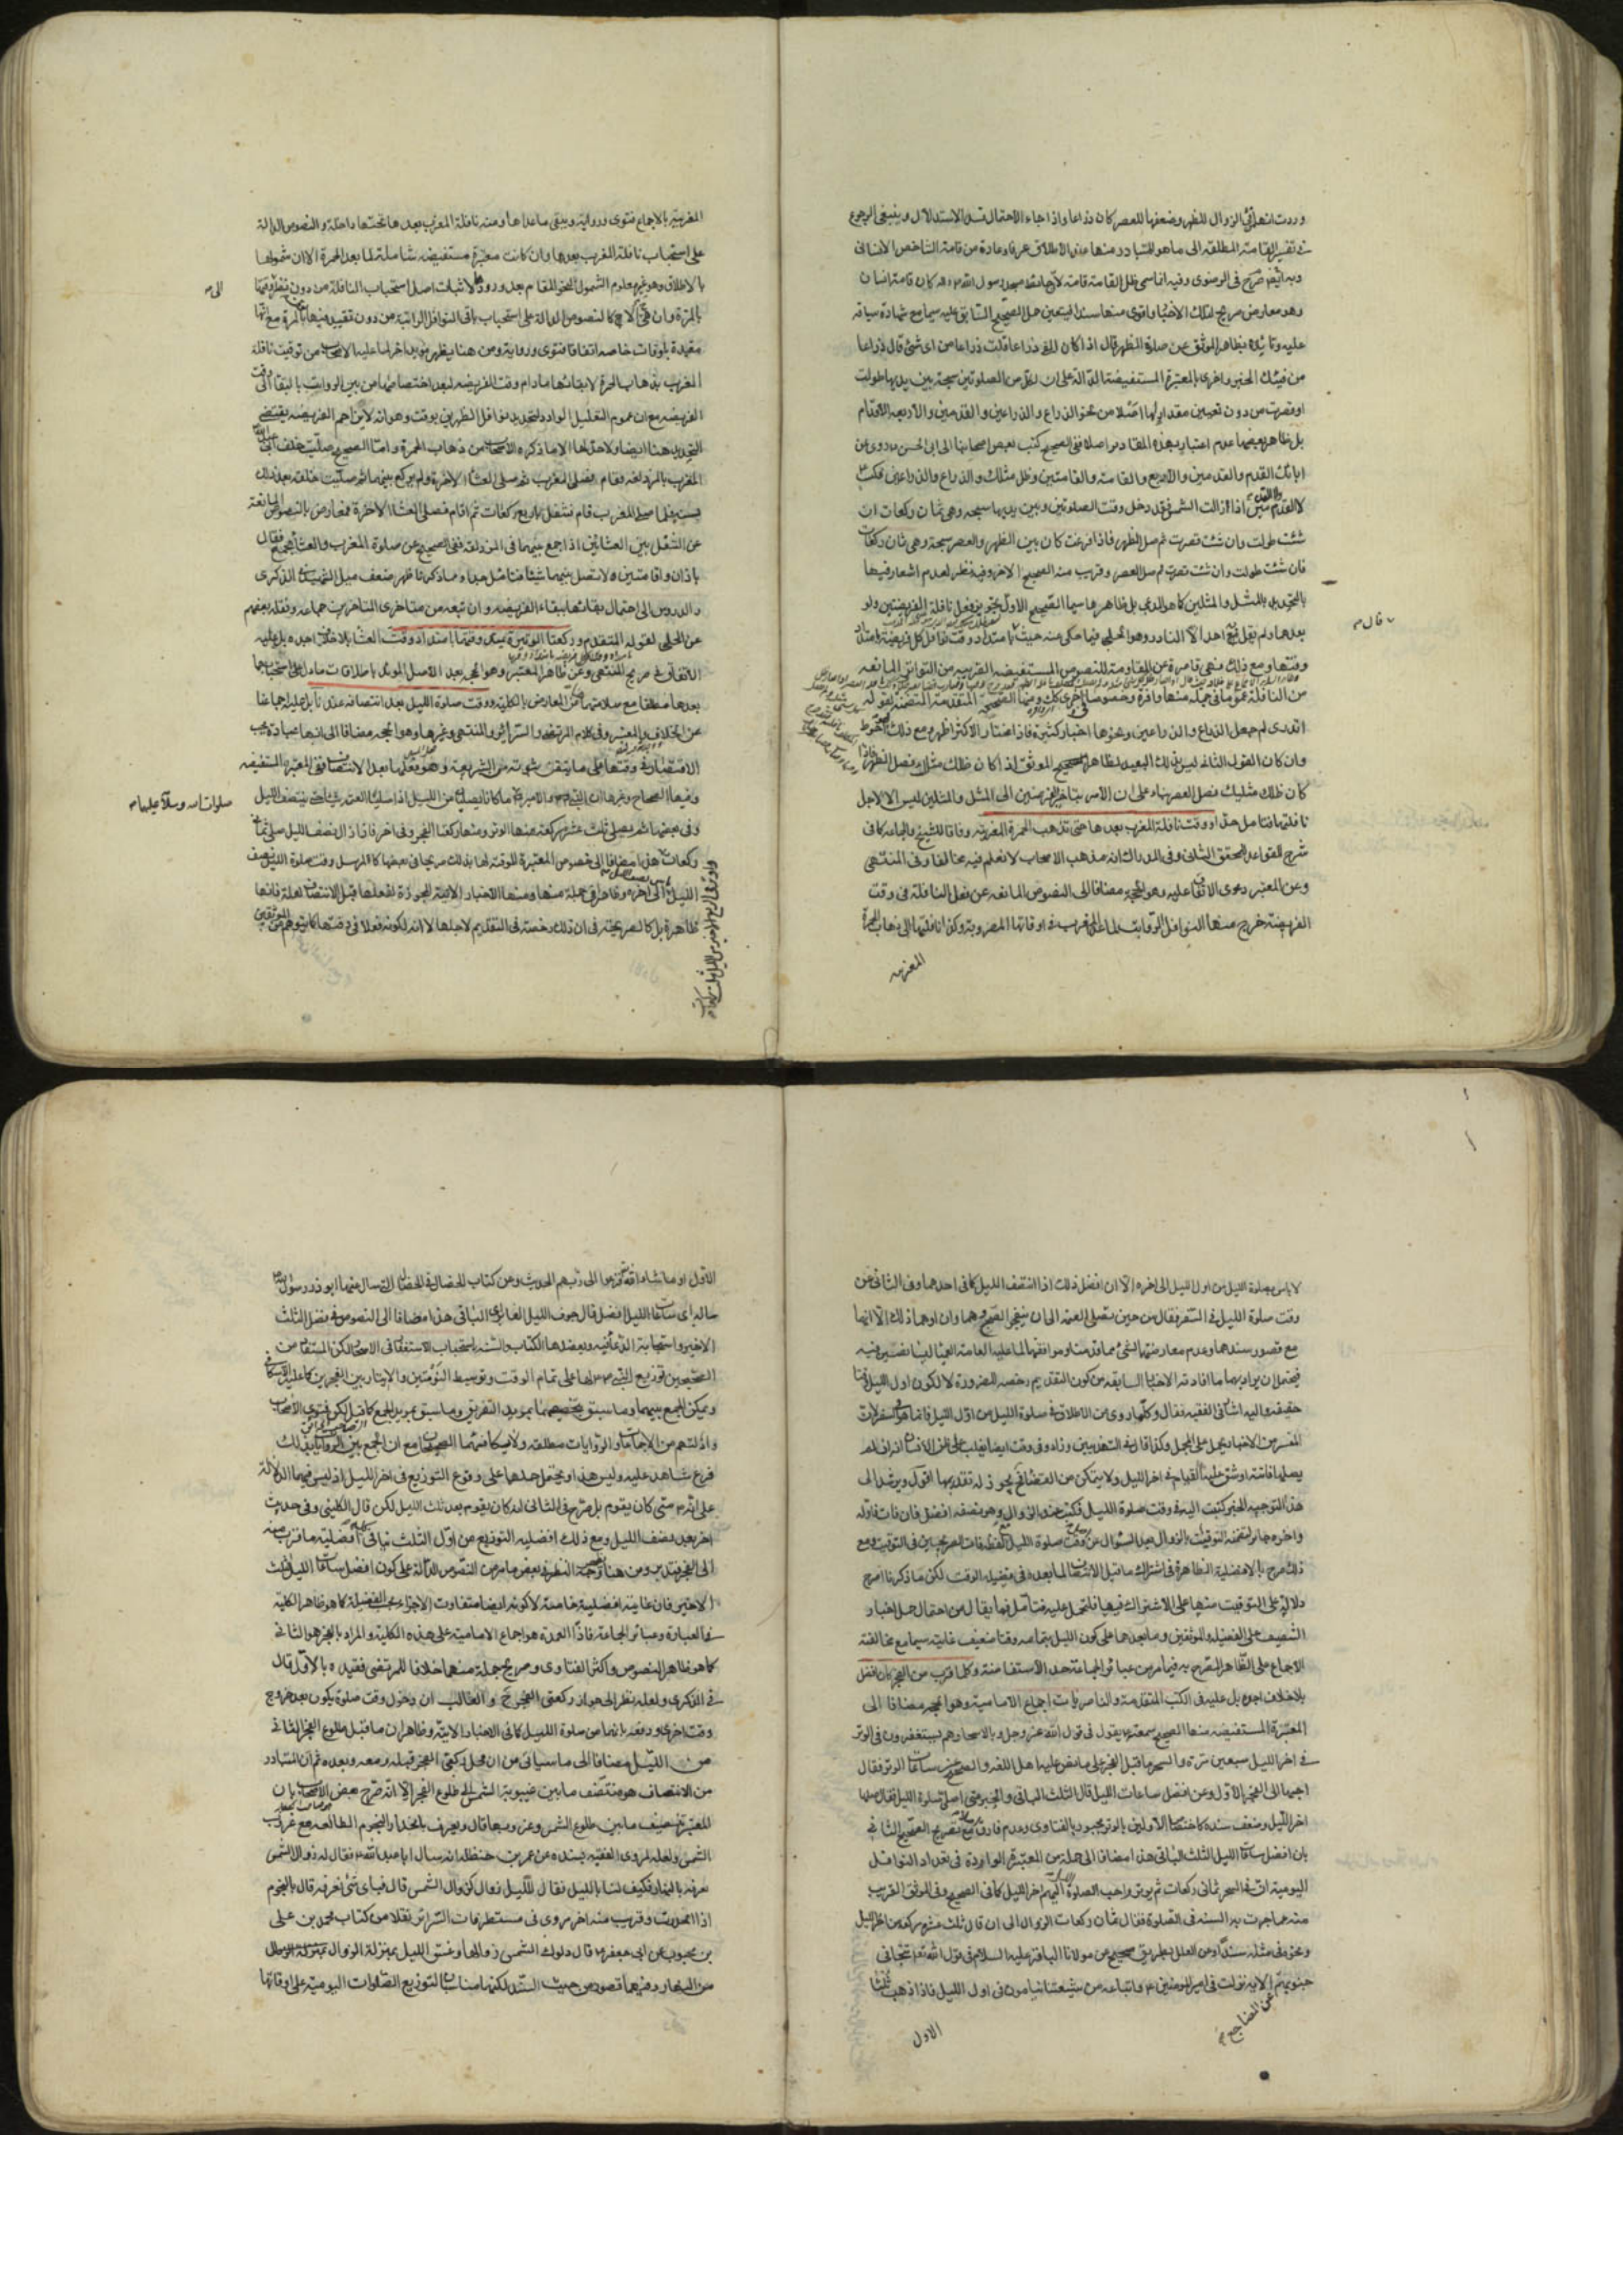 وردت انهما في الزوال للظهر وضعفها للعصر كان ذراعا واذا جاء الاحتمال فسد الاستدلال وينبغي الرجوع
في تفسير القامة المطلقة الى ما هو المتبادر منها عند الاطلاق عرفا وعادة من قامة الشاخص الانساني
وبه ايضا صرح في الرضوي وفيه انما سمي ظل القامة قامة لان حائط مسجد رسول الله ص كان قامة انسان
وهو معارض صريح لتلك الاخبار واقوى منها سندا فيتعين حمل الصحيح السابق عليه سيما مع شهادة سياقه
عليه وتأيده بظاهر الموثق عن صلوة الظهر قال اذا كان الفئ ذراعا قلت ذراعا من اي شئ قال ذراعا
من فيئك الخبر واخرى بالمعتبرة المستفيضة الدالة على ان لكل من الصلوتين سبحة بين يديها طولت
او قصرت من دون تعيين مقدار لها اصلا من نحو الذراع والذراعين والقدمين والاربعة الاقدام
بل ظاهر بعضها عدم اعتبار بهذه المقادير اصلا ففي الصحيح كتب بعض اصحابنا الى ابي الحسن ع روي عن
ابائك القدم والقدمين والاربع والقامة والقامتين وظل مثلك والذراع والذراعين فكتب ع
لا القدم ولا القدمين اذا زالت الشمس فقد دخل وقت الصلوتين وبين يديها سبحة وهي ثمان ركعات ان
شئت طولت وان شئت قصرت ثم صل الظهر فاذا فرغت كان بين الظهر والعصر سبحة وهي ثمان ركعات
فان شئت طولت وان شئت قصرت ثم صل العصر وقريب منه الصحيح الاخر وفيه نظر لعدم اشعار فيها
بالتحديد بالمثل والمثلين كما هو المدعى بل ظاهرها سيما الصحيح الاول تجويز فعل نافلة الفريضتين ولو
بعدها ولم يقل به احد الا النادر وهو الحلبي فيما حكي عنه حيث
وقتها ومع ذلك فهي قاصرة عن المقاومة للنصوص المستفيضة القريبة من التواتر المانعة
من النافلة عموما في جملة منها وافرة وخصوصا في اخرى كك ومنها الصحيحة المتقدمة المتضمنة لقوله
اتدري لم جعل الذراع والذراعين ونحوها اخبار كثيرة فاذا ما اختاره الاكثر اظهر ومع ذلك احوط
وان كان القول الثاني ليس بذلك البعيد لظاهر الموثق اذا كان ظلك مثلك فصل الظهر فاذا
كان ظلك مثليك فصل العصر بناء على ان الامر بتاخير الفرضين الى المثل والمثلين ليس الا لاجل
نافلتها فتامل جدا ووقت نافلة المغرب بعدها حتى تذهب الحمرة المغربية وفاقا للشيخ والجماعة كما في
شرح القواعد للمحقق الثاني وفي المدارك انه مذهب الاصحاب لا نعلم فيه مخالفا وفي المنتهى
وعن المعتبر دعوى الاتفاق عليه وهو الحجة مضافا الى النصوص المانعة عن فعل النافلة في وقت
الفريضة خرج منها النوافل الرواتب لما عدا المغرب في اوقاتها المضروبة وكذا نافلتها الى ذهاب الحمرة
قال م
المغربية
المغربية بالاجماع فتوى ورواية ويبقى ما عداها ومنه نافلة المغرب بعدها تحتها داخلة والنصوص الدالة
على استحباب نافلة المغرب بعدها وان كانت معتبرة مستفيضة شاملة لما بعد الحمرة الا ان شمولها
بالاطلاق وهو غير معلوم الشمول لنحو المقام بعد وروده لاثبات اصل استحباب النافلة من دون نظر الى وقتها
بالمرة وان هي الا كالنصوص الدالة على استحباب باقي النوافل الراتبة من دون تقييد فيها بالمرة مع انها
مقيدة باوقات خاصة اتفاقا فتوى ورواية ومن هنا يظهر جواب اخر لما عليه الاصحاب من توقيت نافلة
المغرب بذهاب الحمرة لا ببقائها ما دام وقت الفريضة لبعد اختصاصها من بين الرواتب بالبقاء الى وقت
الفريضة مع ان عموم التعليل الوارد لتحديد نوافل الظهرين بوقت وهو انه لئلا يزاحم الفريضة يقتضي
التحديد هنا ايضا ولا حد لها الا ما ذكره الاصحاب من ذهاب الحمرة واما الصحيح صليت خلف ابي عبد الله
المغرب بالمزدلفة فقام فصلى المغرب ثم صلى العشاء الاخرة ولم يركع بينهما ثم صليت خلفه بعد ذلك
بسنة فلما صلى المغرب قام فتنفل باربع ركعات ثم اقام فصلى العشاء الاخرة فمعارض بالنصوص المانعة
عن التنفل بين العشائين اذا جمع بينهما في المزدلفة ففي الصحيح عن صلوة المغرب والعشاء بجمع فقال
باذان واقامتين ولا تصل بينهما شيئا فتامل جدا وما ذكرنا ظهر ضعف ميل الشهيد في الذكرى
والدروس الى احتمال بقائها ببقاء الفريضة وان تبعه من متاخري المتاخرين جماعة ونقله بعضهم
عن الحلبي لقوله المتقدم وركعتا الوتيرة يمتد وقتهما بامتداد وقت العشاء بلا خلاف اجده بل عليه
الاتفاق في صريح المنتهى وعن ظاهر المعتبر وهو الحجة بعد الاصل المؤيد باطلاقات ما دل على استحبابهما
بعدها مطلقا مع سلامتها عن المعارض بالكلية ووقت صلوة الليل بعد انتصافه عندنا بل عليه اجماعنا
عن الخلاف والمعتبر وفي كلام المرتضى والسرائر والمنتهى وغيرها وهو الحجة مضافا الى انها عبادة يجب
الاقتصار في وقتها على ما يتيقن ثبوته من الشريعة وهو فعلها بعد الانتصاف ففي المعتبرة المستفيضة
وفيها الصحاح وغيرها ان النبي ص والامير ع ما كانا يصليان من الليل اذا صليا العتمة شيئا حتى ينتصف الليل
وفي بعضها ثم يصلي ثلث عشرة ركعة منها الوتر ومنها ركعتا الفجر وفي اخر فاذا زال نصف الليل صلى ثمان
ركعات هذا مضافا الى خصوص المعتبرة الموقتة لها بذلك صريحا في بعضها كالمرسل وقت صلوة الليل نصف
الليل الى اخره وظاهرا في جملة منها ومنها الاخبار الاتية المجوزة لفعلها قبل الانتصاف لعلة فانها
ظاهرة بل كالصريحة في ان ذلك رخصة في التقديم لاجلها لا انه لكونه فعلا في وقتها كما يتوهم من الموثقين
الى م
صلوات الله وسلامه عليهما م
لا باس بصلوة الليل من اول الليل الى اخره الا ان افضل ذلك اذا انتصف الليل كما في احدهما وفي الثاني عن
وقت صلوة الليل في السفر فقال من حين تصلي العتمة الى ان ينفجر الصبح وهما وان اوهما ذلك الا انهما
مع قصور سندهما وعدم معارضتهما لشئ مما قدمنا وموافقتهما لما عليه العامة العمياء ليسا نصين فيه
فيحتمل ان يراد بهما ما افادته الاخبار السابقة من كون التقديم رخصة للضرورة لا لكون اول الليل وقتا
حقيقة واليه اشار في الفقيه فقال وكلما روي من الاطلاق في صلوة الليل من اول الليل فانما هو في السفر لان
المفسر من الاخبار يحمل على المجمل وكذا قال في التهذيبين وزاد وفي وقت ايضا يغلب على ظن الانسان انه ان لم
يصلها فاتته او شق عليه القيام في اخر الليل ولا يتمكن من القضاء فح يجوز له تقديمها اقول ويرشد الى
هذا التوجيه الخبر كتبت اليه في وقت صلوة الليل فكتب عند الزوال وهو نصفه افضل فان فات فاوله
واخره جائز لتضمنه التوقيت بالزوال بعد السؤال عن وقت صلوة الليل
ذلك صرح بالافضلية الظاهرة في اشتراك ما قبل الانتصاف لما بعده في فضيلة الوقت لكن ما ذكرنا اصرح
دلالة على التوقيت منها على الاشتراك فيها فلتحمل عليه فتامل فما يقال من احتمال حمل اخبار
التنصيف على الفضيلة والموثقين وما بعدهما على كون الليل بتمامه وقتا ضعيف غايته سيما مع مخالفته
الاجماع على الظاهر المصرح به فيما مر من عبائر الجماعة حد الاستفاضة وكلما قرب من الفجر كان افضل
بلا خلاف اجده بل عليه في الكتب المتقدمة والناصريات اجماع الامامية وهو الحجة مضافا الى
المعتبرة المستفيضة منها الصحيح سمعته ع يقول في قول الله عز وجل وبالاسحار هم يستغفرون في الوتر
في اخر الليل سبعين مرة والسحر ما قبل الفجر على ما نص عليه اهل اللغة والصحيح عن ساعات الوتر فقال
احبها الى الفجر الاول وعن افضل ساعات الليل قال الثلث الباقي والخبر متى اصلي صلوة الليل فقال صلها
اخر الليل وضعف سنده كاختصاص الاولين بالوتر مجبور بالفتاوى وعدم فارق مع تصريح الصحيح الثاني
بان افضل ساعات الليل الثلث الباقي هذا مضافا الى جملة من المعتبرة الواردة في تعداد النوافل
اليومية ان في السحر ثماني ركعات ثم يوتر واحب الصلوة اليهم اخر الليل كما في الصحيح وفي الموثق القريب
منه عما جرت به السنة في الصلوة فقال ثمان ركعات الزوال الى ان قال ثلث عشرة ركعة من اخر الليل
ونحوه في مثله سندا وعن العلل بطريق صحيح عن مولانا الباقر عليه السلام في قول الله تع تتجافى
جنوبهم الاية نزلت في امير المؤمنين ع واتباعه من شيعتنا ينامون في اول الليل فاذا ذهب ثلثا
عن المضاجع م
الاول
الاول او ما شاء الله فزعوا الى ربهم الحديث وعن كتاب الخصال في الخصال التي سال عنها ابو ذر رسول الله ص
ساله اي ساعات الليل افضل قال جوف الليل الغابر اي الباقي هذا مضافا الى النصوص في فضل الثلث
الاخير واستجابة الدعاء فيه ويعضدها الكتاب والسنة باستحباب الاستغفار في الاسحار لكن المستفاد من
الصحيحين توزيع النبي ص لها على تمام الوقت وتوسيط النومتين والايتار بين الفجرين كما عليه الاسكافي
ويمكن الجمع بينهما وما سبق بتخصيصها بمريد التفريق وما سبق بمريد الجمع كما قيل لكن فتوى الاصحاب
وادلتهم من الاجماعات والروايات مطلقة ولا ينافيها الصحيحان مع ان الجمع بين الروايات بذلك
فرع شاهد عليه وليس هذا ويحتمل حملها على وقوع التوزيع في اخر الليل اذ ليس فيهما الدلالة
على انه ص متى كان يقوم بل صرح في الثاني انه كان يقوم بعد ثلث الليل لكن قال الكليني وفي حديث
اخر بعد نصف الليل ومع ذلك افضلية التوزيع من اول الثلث ينافي افضلية ما قرب منه
الى الفجر فتدبر ومن هنا وجه النظر في بعض ما مر من النصوص الدالة على كون افضل ساعات الليل الثلث
الاخير فان غايته افضلية خاصة لا كونه ايضا متفاوت الاجزاء بحسب الفضيلة كما هو ظاهر الكلية
في العبارة وعبائر الجماعة فاذا العمدة هو اجماع الامامية على هذه الكلية والمراد بالفجر هو الثاني
كما هو ظاهر النصوص واكثر الفتاوى وصريح جملة منها خلافا للمرتضى فقيده بالاول قال
في الذكرى ولعله نظر الى جواز ركعتي الفجر ح والغالب ان دخول وقت صلوة يكون بعد خروج
وقت اخرى ودفعه بانهما من صلوة الليل كما في الاخبار الاتية وظاهر ان ما قبل طلوع الفجر الثاني
من الليل مضافا الى ما سياتي من ان محل ركعتي الفجر قبله ومعه وبعده ثم ان المتبادر
من الانتصاف هو منتصف ما بين غيبوبة الشمس الى طلوع الفجر الا انه صرح بعض الاصحاب بان
المعتبر تنصيف ما بين طلوع الشمس وغروبها قال ويعرف بانحدار النجوم الطالعة مع غروب
الشمس ولعله لمروي الفقيه بسنده عن عمر بن حنظلة انه سال ابا عبد الله ع فقال له زوال الشمس
نعرفه بالنهار فكيف لنا بالليل فقال لليل زوال كزوال الشمس قال فباي شئ نعرفه قال بالنجوم
اذا انحدرت وقريب منه اخر مروي في مستطرفات السرائر نقلا من كتاب محمد بن علي
بن محبوب عن ابي جعفر ع قال دلوك الشمس زوالها وغسق الليل بمنزلة الزوال
من النهار وفيهما قصور من حيث السند لكنهما مناسبان لتوزيع الصلوات اليومية على اوقاتها